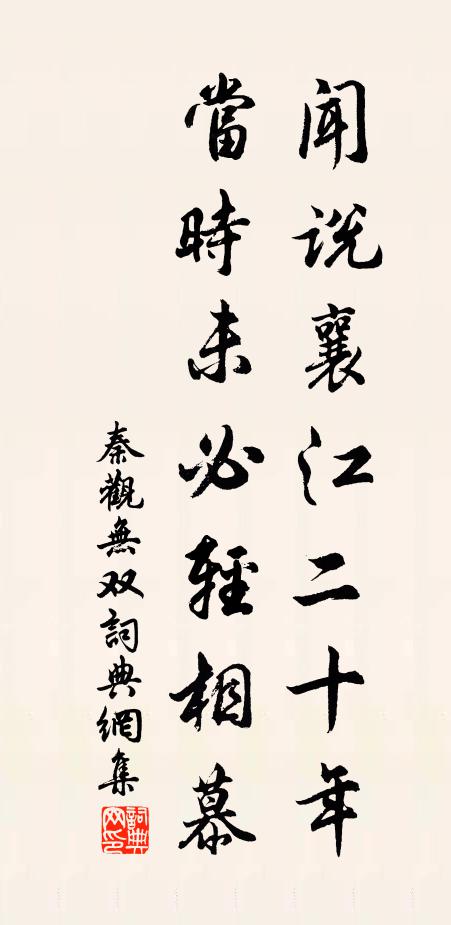 聞說襄江二十年
當時未必輕相慕
秦觀無双詞典網集
詞典網印